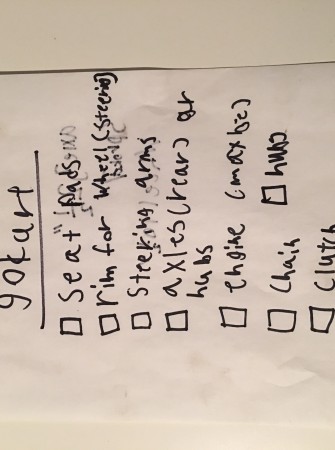 gokart
☐ Seat pads
☐ rim for wheel (steering)
☐ Steering arms
☐ axles (rear) or
hubs
☐ engine (max
☐ Chain ☐ hubs
☐ Clutch